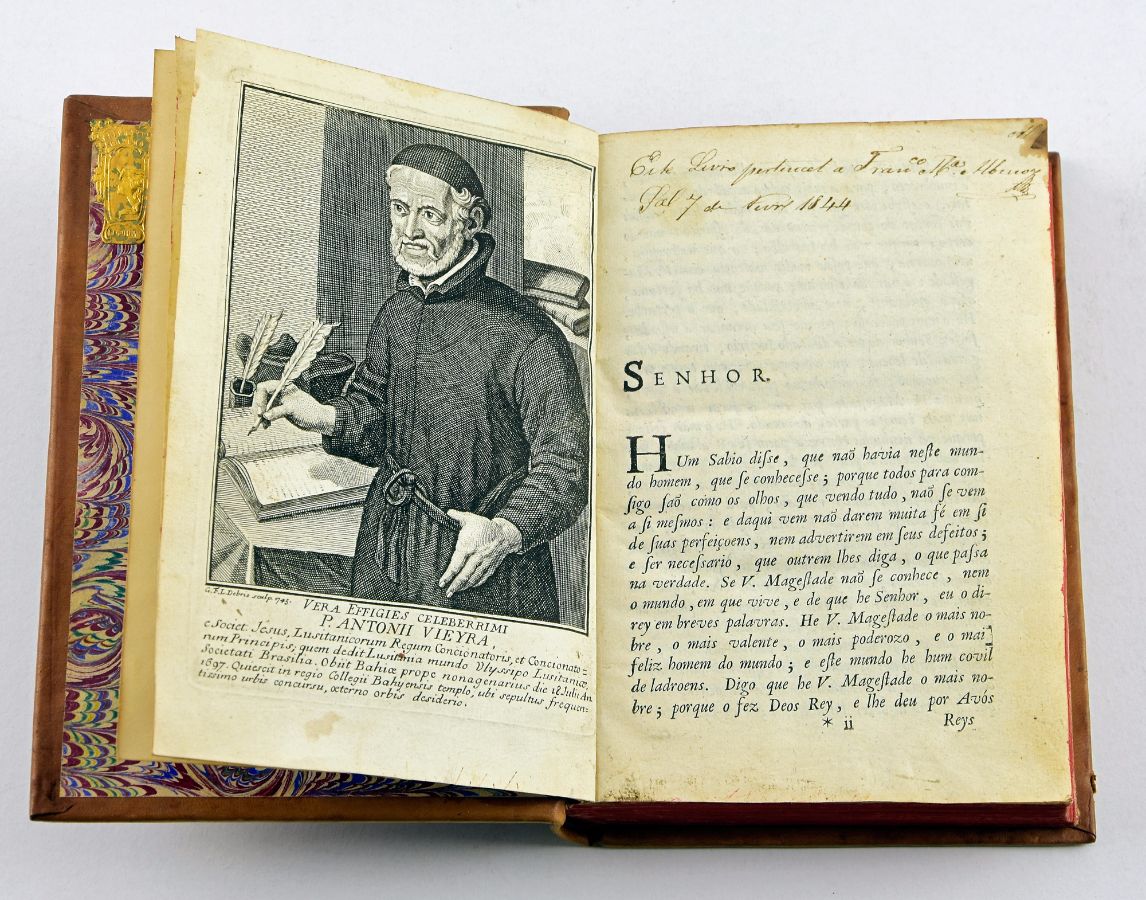 G.F.L.Debrie sculp. 745.
VERA EFFIGIES CELEBERRIMI
P. ANTONII VIEYRA,
e Societ. Jesus, Lusitanicorum Regum Concionatoris, et Concionato=
rum Principis; quem dedit Lusitania mundo Ulyssipo Lusitaniæ,
Societati Brasilia. Obiit Bahiæ prope nonagenarius die 18 Julii An
1697. Quiescit in regio Collegii Bahyensis templo, ubi sepultus frequen=
tissimo urbis concursu, æterno orbis desiderio.
Livro a Fran.co
7 de 1844
SENHOR.
HUm Sabio diſſe, que naõ havia neſte mun-
do homem, que ſe conheceſſe; porque todos para com-
ſigo ſaõ como os olhos, que vendo tudo, naõ ſe vem
a ſi meſmos: e daqui vem naõ darem muita fé em ſi
de ſuas perfeiçoens, nem advertirem em ſeus defeitos;
e ſer neceſſario, que outrem lhes diga, o que paſſa
na verdade. Se V. Mageſtade naõ ſe conhece, nem
o mundo, em que vive, e de que he Senhor, eu o di-
rey em breves palavras. He V. Mageſtade o mais no-
bre, o mais valente, o mais poderozo, e o mais
feliz homem do mundo; e eſte mundo he hum covil
de ladroens. Digo que he V. Mageſtade o mais no-
bre; porque o fez Deos Rey, e lhe deu por Avós
* ii Reys